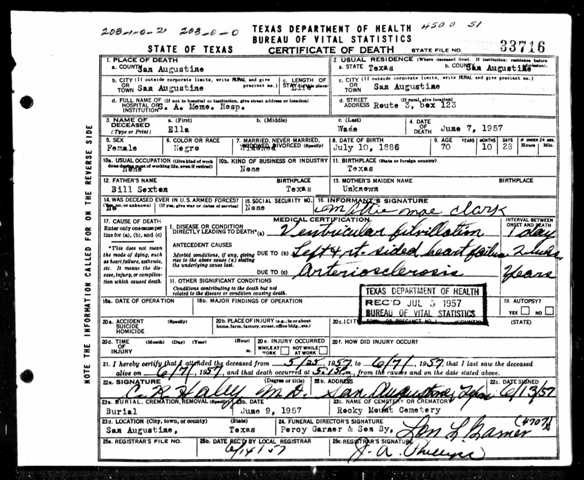 203-1-0-2 203-0-0 TEXAS DEPARTMENT OF HEALTH 4500 51
BUREAU OF VITAL STATISTICS
STATE OF TEXAS CERTIFICATE OF DEATH STATE FILE NO. 33716
1. PLACE OF DEATH 2. USUAL RESIDENCE (Where deceased lived. If institution: residence before
a. COUNTY San Augustine a. STATE Texas b. COUNTY San Augustine
b. CITY (If outside corporate limits, write RURAL and give precinct no.) c. LENGTH OF c. CITY (If outside corporate limits, write RURAL and give precinct no.)
OR TOWN San Augustine OR TOWN San Augustine
d. FULL NAME OF (If not in hospital or institution, give street address or location) d. STREET ADDRESS (If rural, give location)
HOSPITAL OR INSTITUTION S. A. Meme. Hosp. Route 3, Box 123
3. NAME OF DECEASED a. (First) b. (Middle) c. (Last) 4. DATE OF DEATH
(Type or Print) Ella Wade June 7, 1957
5. SEX 6. COLOR OR RACE 7. MARRIED, NEVER MARRIED, WIDOWED, DIVORCED (Specify) 8. DATE OF BIRTH 9. AGE
Female Negro July 10, 1886 70 10 28
10a. USUAL OCCUPATION (Give kind of work 10b. KIND OF BUSINESS OR INDUSTRY 11. BIRTHPLACE (State or foreign country)
None None Texas
12. FATHER'S NAME BIRTHPLACE 13. MOTHER'S MAIDEN NAME BIRTHPLACE
Bill Sexton Texas Unknown
14. WAS DECEASED EVER IN U.S. ARMED FORCES? 15. SOCIAL SECURITY NO. 16. INFORMANT'S SIGNATURE
No (If yes, give war or dates of service) None Mae Clark
17. CAUSE OF DEATH MEDICAL CERTIFICATION INTERVAL BETWEEN ONSET AND DEATH
Enter only one cause per line for (a), (b), and (c) I. DISEASE OR CONDITION DIRECTLY LEADING TO DEATH*(a) Ventricular fibrillation 1 day
*This does not mean the mode of dying, such as heart failure, asthenia, etc. It means the disease, injury, or complication which caused death. ANTECEDENT CAUSES
Morbid conditions, if any, giving rise to the above cause (a) stating the underlying cause last. DUE TO (b) Left & rt. sided heart failure 2 weeks
DUE TO (c) Arteriosclerosis Years
II. OTHER SIGNIFICANT CONDITIONS
Conditions contributing to the death but not related to the disease or condition causing death.
TEXAS DEPARTMENT OF HEALTH
REC'D JUL 5 1957
BUREAU OF VITAL STATISTICS
18a. DATE OF OPERATION 18b. MAJOR FINDINGS OF OPERATION 19. AUTOPSY?
YES NO
20a. ACCIDENT SUICIDE HOMICIDE (Specify) 20b. PLACE OF INJURY (e.g., in or about home, farm, factory, street, office bldg., etc.)
20d. TIME OF INJURY (Month) (Day) (Year) (Hour) 20e. INJURY OCCURRED WHILE AT WORK NOT WHILE AT WORK 20f. HOW DID INJURY OCCUR?
21. I hereby certify that I attended the deceased from 5/25 1957, to 6/7, 1957, that I last saw the deceased
alive on 6/7, 1957, and that death occurred at m., from the causes and on the date stated above.
22a. SIGNATURE (Degree or title) 22b. ADDRESS 22c. DATE SIGNED
C. R. Haley M.D. San Augustine, Texas 6/13/57
23a. BURIAL, CREMATION, REMOVAL (Specify) 23b. DATE 23c. NAME OF CEMETERY OR CREMATORY
Burial June 9, 1957 Rocky Mount Cemetery
23d. LOCATION (City, town, or county) (State) 24. FUNERAL DIRECTOR'S SIGNATURE
San Augustine, Texas Percy Garner & Son By,
25a. REGISTRAR'S FILE NO. 25b. DATE REC'D BY LOCAL REGISTRAR 25c. REGISTRAR'S SIGNATURE
6/14/57
NOTE THE INFORMATION CALLED FOR ON THE REVERSE SIDE